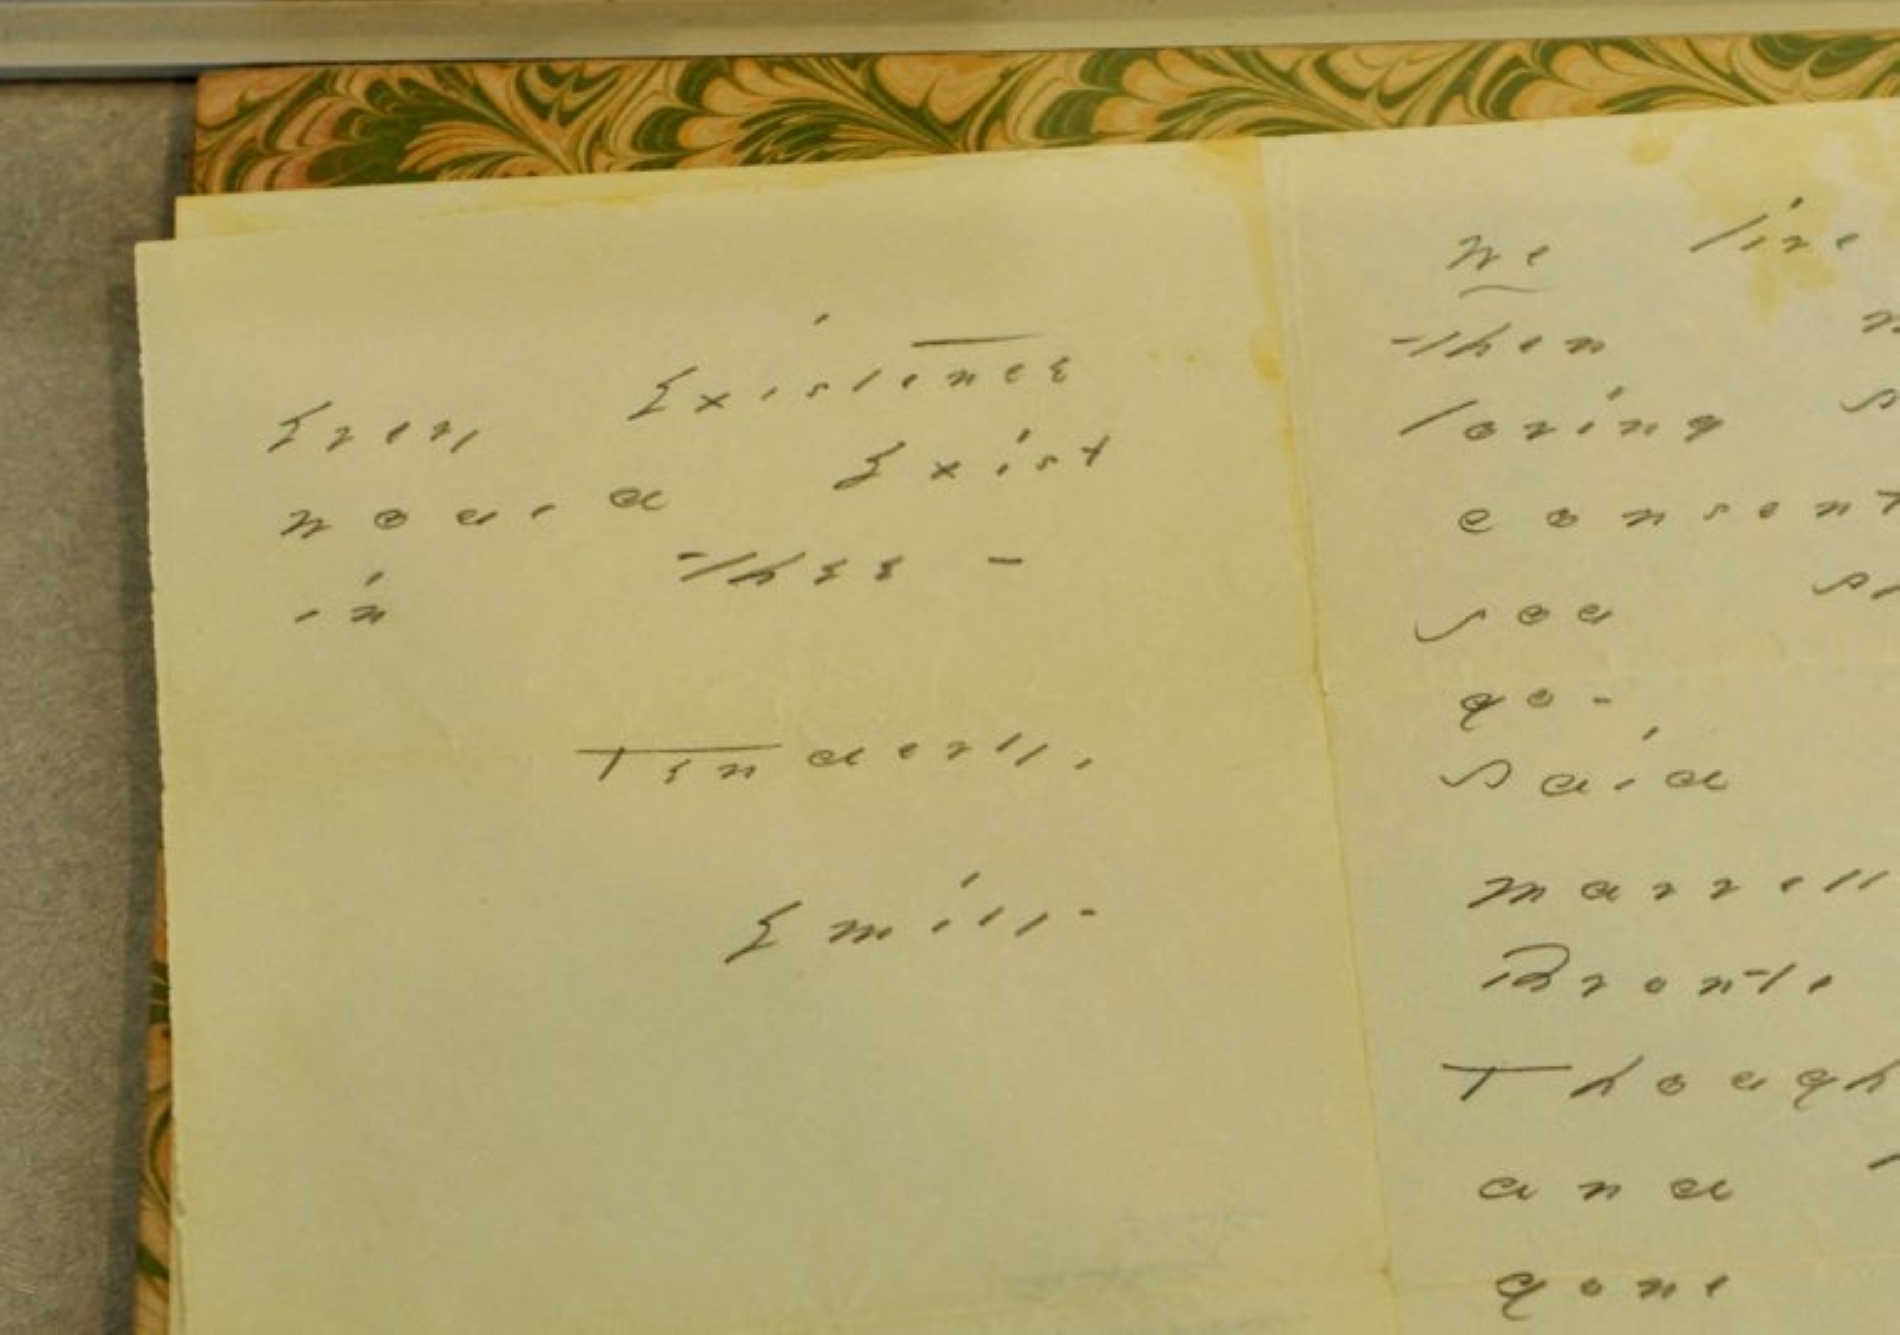 Every Existence
would Exist
in thee -
Tenderly,
Emily -
we live
then
loving
consent
sea
go -
said
marvell
Bronte
Though
and
gone